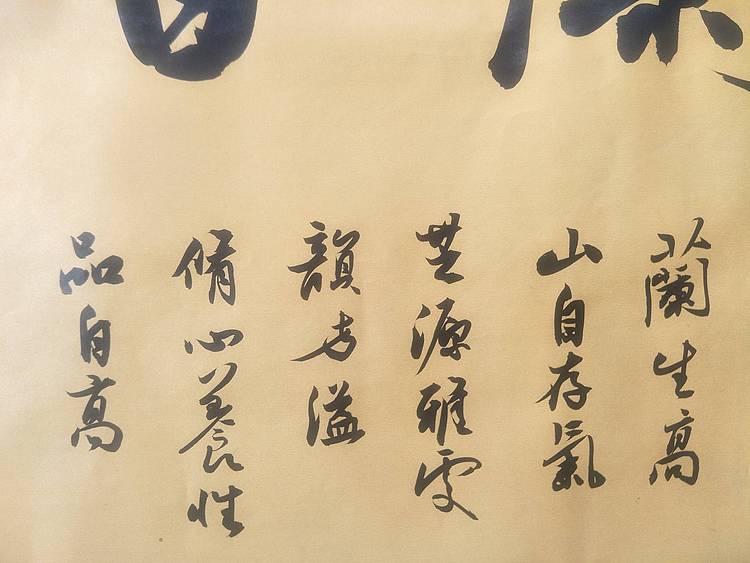 蘭生高
山自存氣
無源雅處
韻方溢
脩心養性
品自高